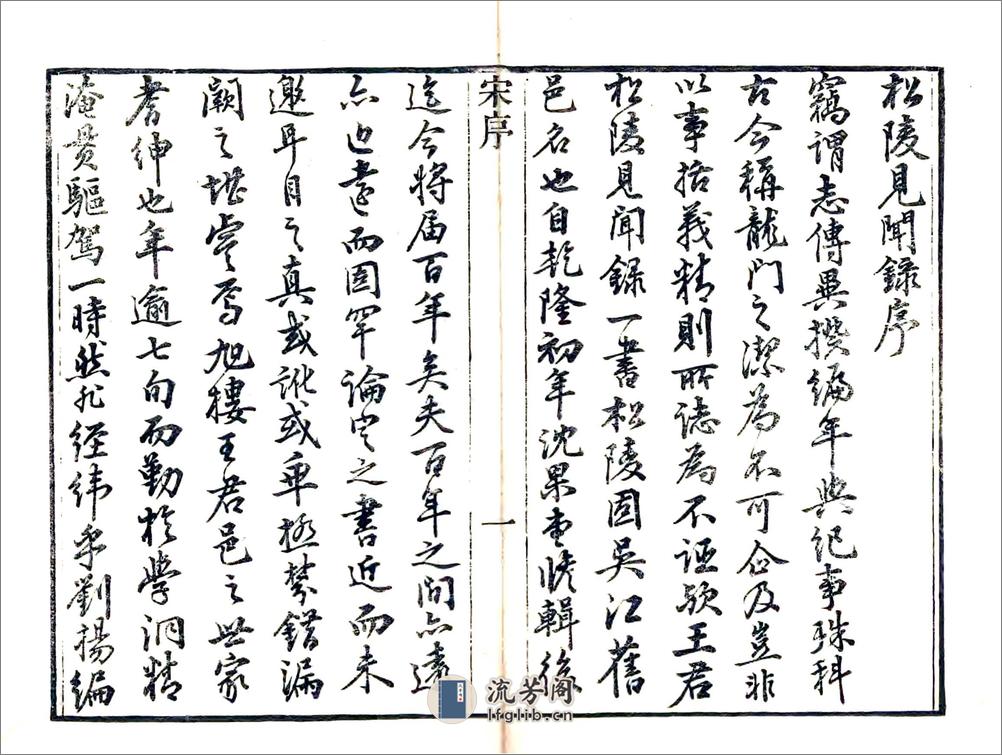 松陵見聞錄序
竊謂志傳異撰編年與紀事殊科
古今稱龍門之潔為不可企及豈非
以事括義精則所誌為不誣歟王君
松陵見聞錄一書松陵固吳江舊
邑名也自乾隆初年沈果堂脩輯後
宋序
一
迄今將屆百年矣夫百年之間亦遠
亦近遠而固罕論定之書近而未
邀耳目之真或訛或乖極棼錯漏
闕之堪虞焉旭樓王君邑之世家
耆紳也年逾七旬而勤於學洞精
淹貫驅駕一時然於經緯乎劉楊編
流芳阁
lfglib.cn